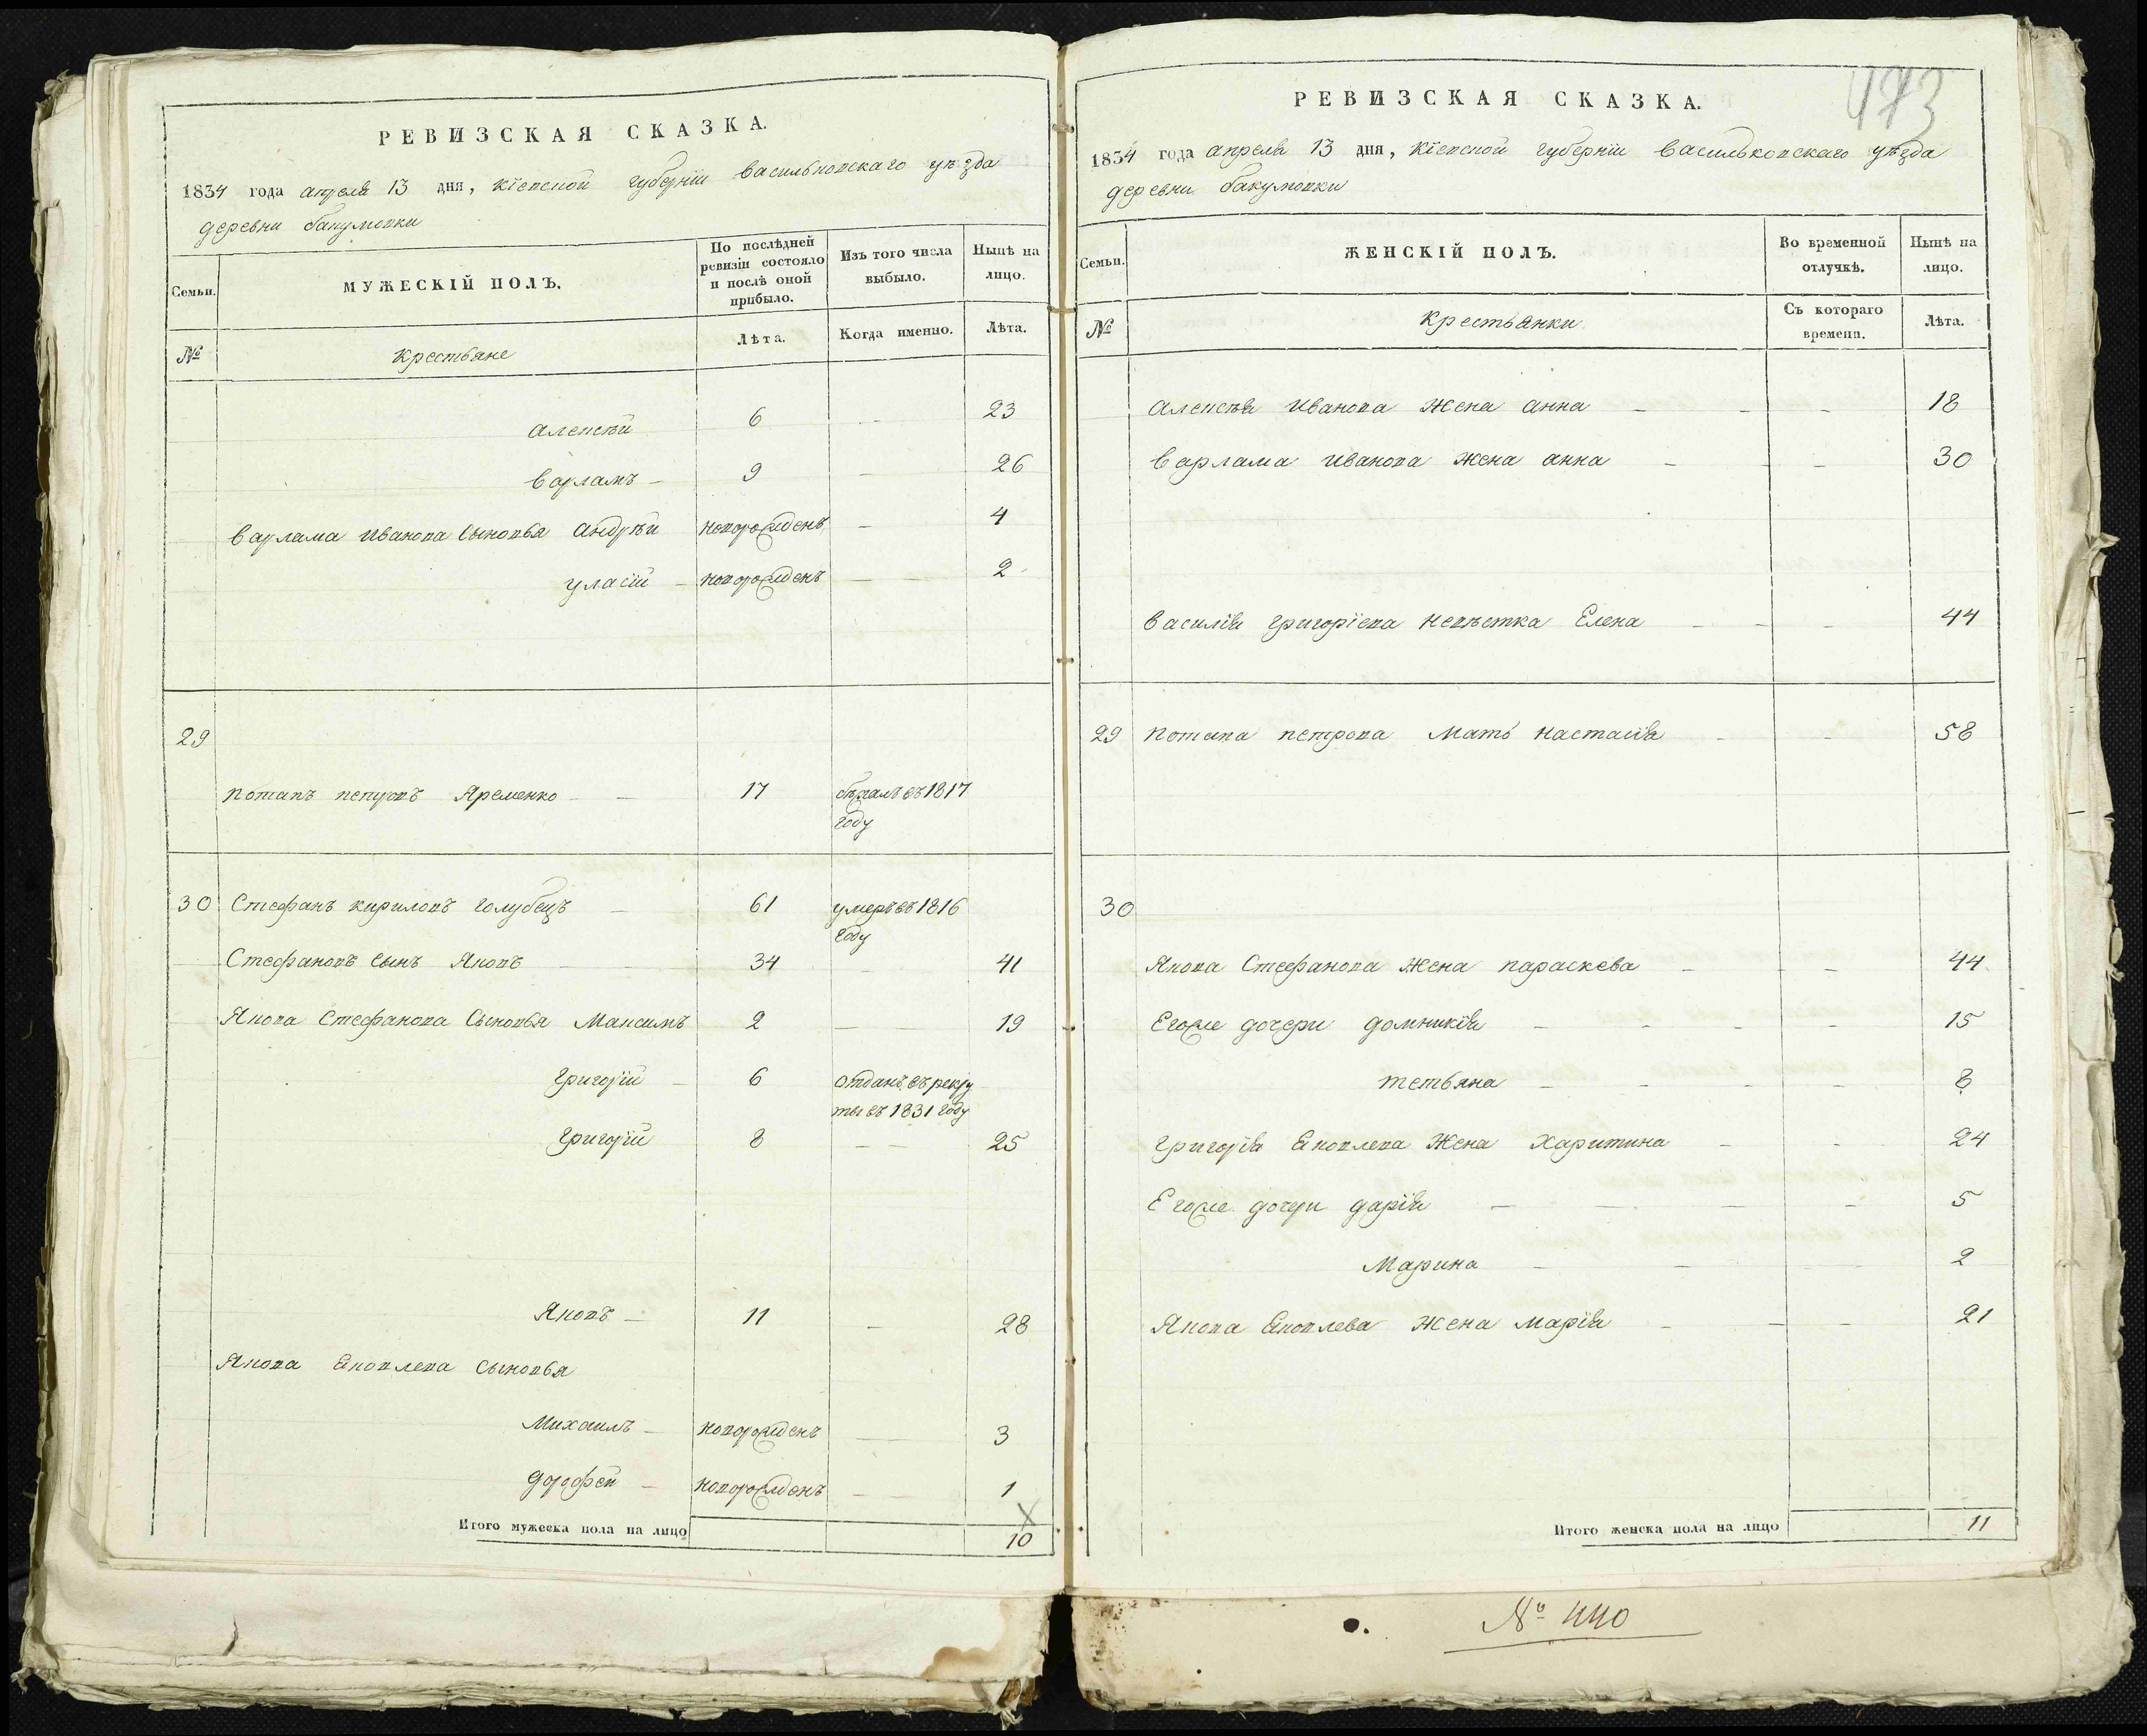 РЕВИЗСКАЯ СКАЗКА.
1834 года апреля 13 дня, Кіевской губерніи Васильковскаго уѣзда
деревни бакумовки
Семьи.
МУЖЕСКІЙ ПОЛЪ.
По послѣдней ревизіи состояло и послѣ оной прибыло.
Изъ того числа выбыло.
Нынѣ на лицо.
№
Крестьяне
Лѣта.
Когда именно.
Лѣта.
Алексѣй 6 — 23
Варламъ — 9 — 26
Варлама Иванова Сыновья Андрѣй новорожденъ — 4
Уласій — новорожденъ — 2
29
Потапъ петровъ Яременко — — 17 бѣжалъ въ 1817
году
30 Стефанъ кириловъ голубецъ — 61 умеръ въ 1816
году
Стефановъ Сынъ Яковъ — 34 — 41
Якова Стефанова Сыновья Максимъ 2 — 19
Григорій — 6 отданъ въ рекру
ты въ 1831 году
Григорій 8 — — 25
Яковъ — 11 — 28
Якова Яковлева Сыновья
Михаилъ — новорожденъ — 3
Дорофей — новорожденъ — 1
Итого мужеска пола на лицо 10
473
РЕВИЗСКАЯ СКАЗКА.
1834 года апреля 13 дня, Кіевской губерніи Васильковскаго уѣзда
деревни бакумовки
Семьи.
ЖЕНСКІЙ ПОЛЪ.
Во временной отлучкѣ.
Нынѣ на лицо.
№
Крестьянки
Съ котораго времени.
Лѣта.
Алексѣя Иванова Жена Анна — — — 18
Варлама Иванова жена анна — — — 30
Василія Григоріева Невѣстка Елена — — — 44
29 Потапа петрова Мать Настасія — — 58
30
Якова Стефанова Жена параскева — — — 44
Егоже дочери домникія — — — — 15
тетьяна — — — — 8
Григорія Яковлева Жена Харитина — — 24
Егоже дочери дарія — — — — 5
Марина — — 2
Якова Яковлева Жена Марія — — — 21
Итого женска пола на лицо 11
№ 440